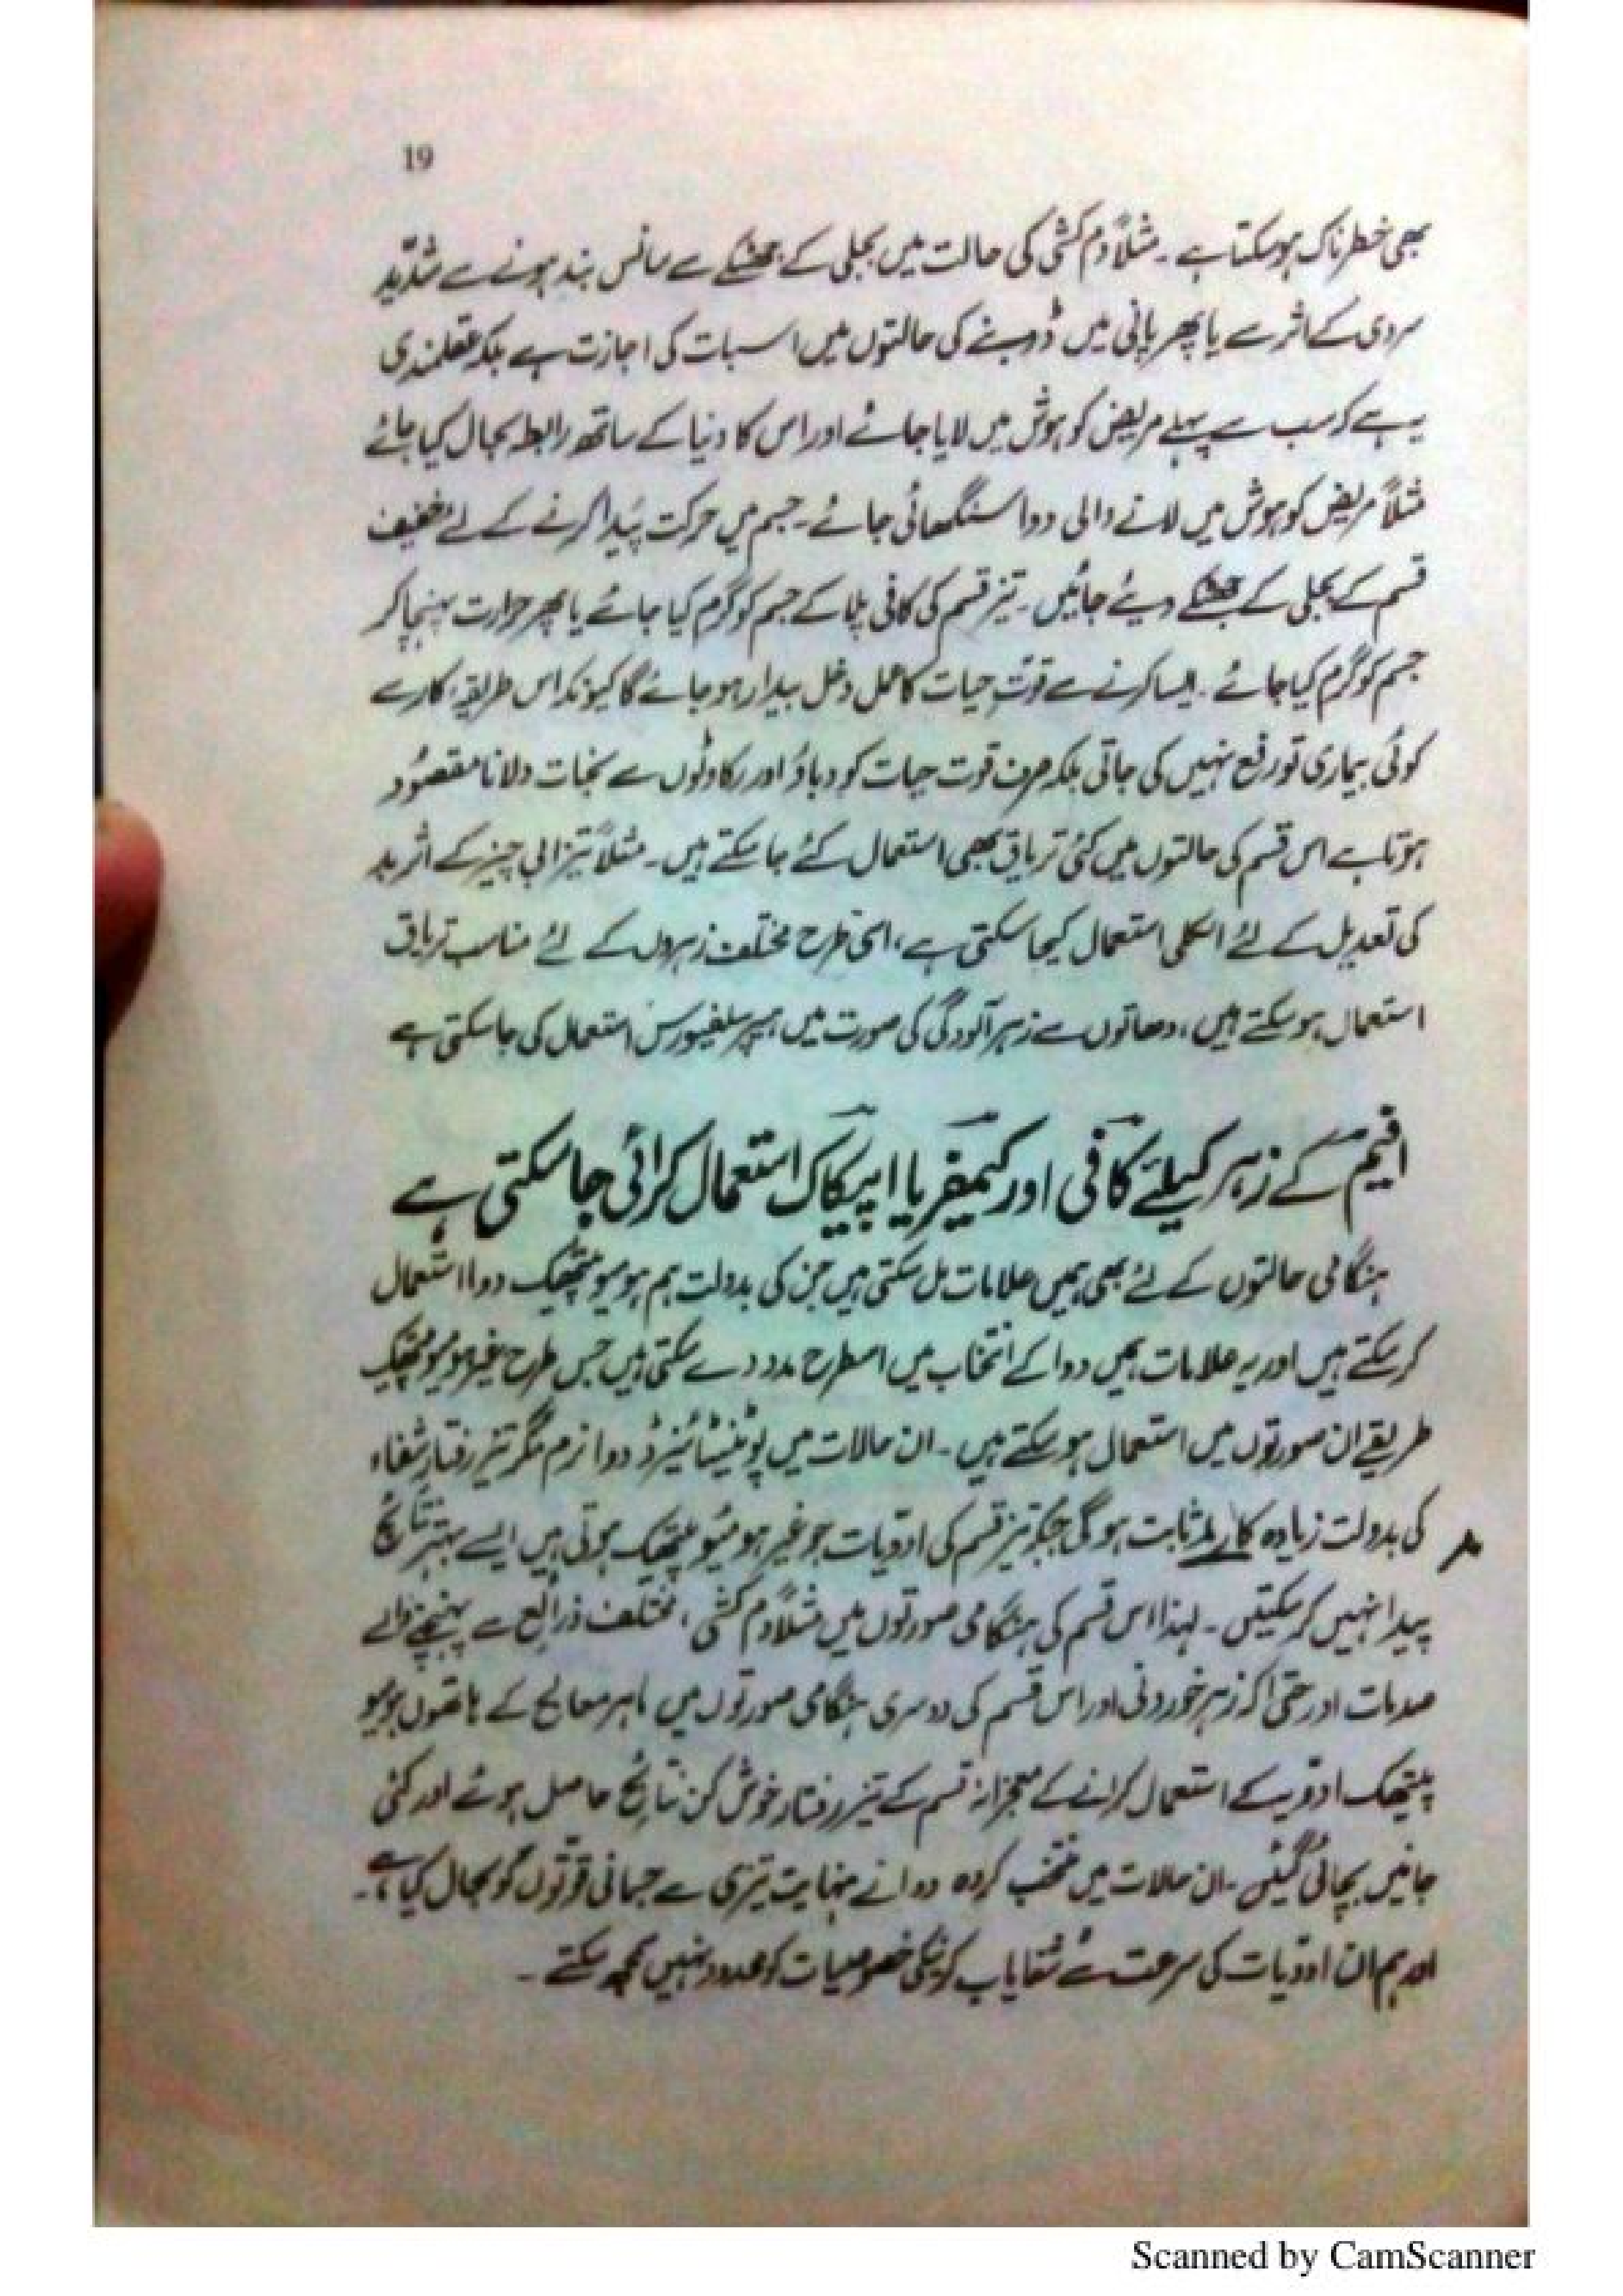 19
بھی خطرناک ہوسکتا ہے ۔ مثلاً دم کشی کی حالت میں بجلی کے جھٹکے سے سانس بند ہونے سے شدید
سردی کے اثر سے یا پھر پانی میں ڈوبنے کی حالتوں میں اسبات کی اجازت ہے بلکہ عقلمندی
یہ ہے کہ سب سے پہلے مریض کو ہوش میں لایا جائے اور اس کا دنیا کے ساتھ رابطہ بحال کیا جائے
مثلاً مریض کو ہوش میں لانے والی دوا سنگھائی جائے ۔ جسم میں حرکت پیدا کرنے کے لئے خفیف
قسم کے بجلی کے جھٹکے دیئے جائیں ۔ تیز قسم کی کافی پلا کے جسم کو گرم کیا جائے یا پھر حرارت پہنچا کر
جسم کو گرم کیا جائے ۔ ایسا کرنے سے قوتِ حیات کا عمل دخل بیدار ہو جائے گا کیونکہ اس طریقۂ کار سے
کوئی بیماری تو رفع نہیں کی جاتی بلکہ صرف قوت حیات کو دباؤ اور رکاوٹوں سے نجات دلانا مقصود
ہوتا ہے اس قسم کی حالتوں میں کئی تریاق بھی استعمال کئے جا سکتے ہیں ۔ مثلاً تیزابی چیز کے اثر بد
کی تعدیل کے لئے الکلی استعمال کیجا سکتی ہے ، اسی طرح مختلف زہروں کے لئے مناسب تریاق
استعمال ہو سکتے ہیں ، دھاتوں سے زہر آلودگی کی صورت میں ہیپر سلفیورس استعمال کی جا سکتی ہے
افیم کے زہر کیلئے کافی اور کیمفر یا اپیکاک استعمال کرائی جا سکتی ہے
ہنگامی حالتوں کے لئے بھی ہمیں علامات مل سکتی ہیں جن کی بدولت ہم ہومیوپیتھیک دوا استعمال
کر سکتے ہیں اور یہ علامات ہمیں دوا کے انتخاب میں اسطرح مدد دے سکتی ہیں جس طرح غیر ہومیوپیتھیک
طریقے ان صورتوں میں استعمال ہو سکتے ہیں ۔ ان حالات میں پوٹینسٹائیزڈ دوا نرم مگر تیز رفتار شفاء
کی بدولت زیادہ ثابت ہوگی جبکہ تیز قسم کی ادویات جو غیر ہومیوپیتھیک ہوتی ہیں ایسے بہتر نتائج
پیدا نہیں کر سکتیں ۔ لہذا اس قسم کی ہنگامی صورتوں میں مثلاً دم کشی ، مختلف ذرائع سے پہنچنے والے
صدمات اور حتیٰ کہ زہر خوردنی اور اس قسم کی دوسری ہنگامی صورتوں میں ماہر معالج کے ہاتھوں ہومیو
پیتھک ادویہ کے استعمال کرانے کے معجزانہ قسم کے تیز رفتار خوش کن نتائج حاصل ہوئے اور کئی
جانیں بچائی گئیں ۔ ان حالات میں منتخب کردہ دوا نے نہایت تیزی سے جسمانی قوتوں کو بحال کیا ہے ۔
اور ہم ان ادویات کی سرعت سے شفایاب کی خصوصیات کو محدود نہیں سمجھ سکتے ۔
Scanned by CamScanner